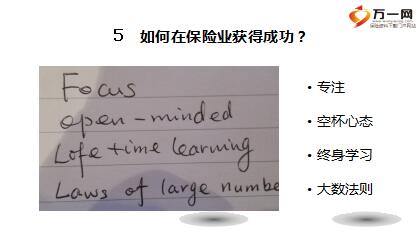 万一网
5 如何在保险业获得成功？
Focus
open-minded
Life time learning
Laws of large numbe
• 专注
• 空杯心态
• 终身学习
• 大数法则